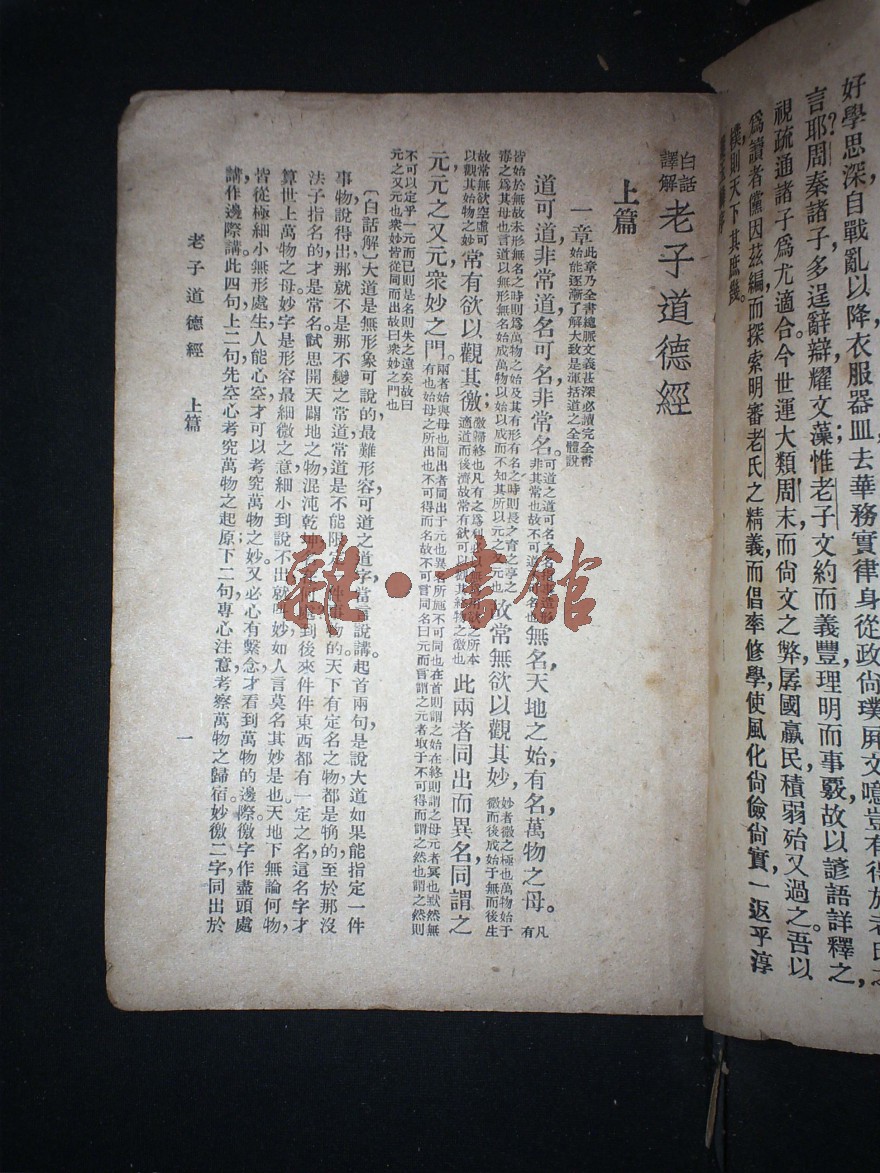 好學思深自戰亂以降，衣服器皿，去華務實，律身從政，尙璞屏文，噫，豈有得於老氏之
言耶？周秦諸子，多逞辭辯，耀文藻，惟老子文約而義豐，理明而事覈，故以諺語詳釋之，
視疏通諸子爲尤適合。今世運大類周末，而尙文之弊，孱國羸民，積弱殆又過之。吾以
爲讀者儻因茲編，而探索明審老氏之精義，而倡率修學，使風化尙儉尙實，一返乎淳
樸，則天下其庶幾。
白話譯解 老子道德經
上篇
一章 此章乃全書總脈文義甚深必讀完全書始能逐漸了解大致是渾括道之全體說
道可道，非常道，名可名，非常名。可道之道可名之名指事造形非其常也故不可道不可名也無名，天地之始，有名，萬物之母。凡有
皆始於無故未形無名之時則爲萬物之始及其有形有名之時則長之育之亭之毒之爲其母也言道以無形無名始成萬物以始以成而不知其所以元之又元也故常無欲以觀其妙，妙者微之極也萬物始于微而後成始于無而後生
故常無欲空虛可以觀其始物之妙常有欲以觀其徼；徼歸終也凡有之爲利必以無爲用欲之所本適道而後濟故常有欲可以觀其終物之徼也此兩者同出而異名，同謂之
元，元之又元，衆妙之門。兩者始與母也同出者同出于元也異名所施不可同也在首則謂之始在終則謂之母元者冥也默然無有也始母之所出也不可得而名故不可言同名曰元而言謂之元者取于不可得而謂之然也謂之然則
不可以定乎一元而已則是名則失之遠矣故曰元之又元也衆妙皆從同而出故曰衆妙之門也
（白話解）大道是無形象可說的，最難形容，可道之道字，當言說講。起首兩句，是說大道如果能指定一件
事物，說得出，那就不是那不變之常道，常道是不能限定一件事物的，天下有定名之物，都是猧的，至於那沒
法子指名的，才是常名，試思開天闢地之物，混沌乾坤，到後來件件東西，都有一定之名，這名字，才
算世上萬物之母，妙字是形容最細微之意，細小到說不出，就叫妙，如人言莫名其妙是也，天地下無論何物，
皆從極細小無形處生，人能心空，才可以考究萬物之妙；又必心有繫念，才看到萬物的邊際，徼字作盡頭處
講，作邊際講，此四句，上二句，先空心考究萬物之起原，下二句，專心注意考察萬物之歸宿，妙徼二字，同出於
老子道德經　上篇
一
雜·書館